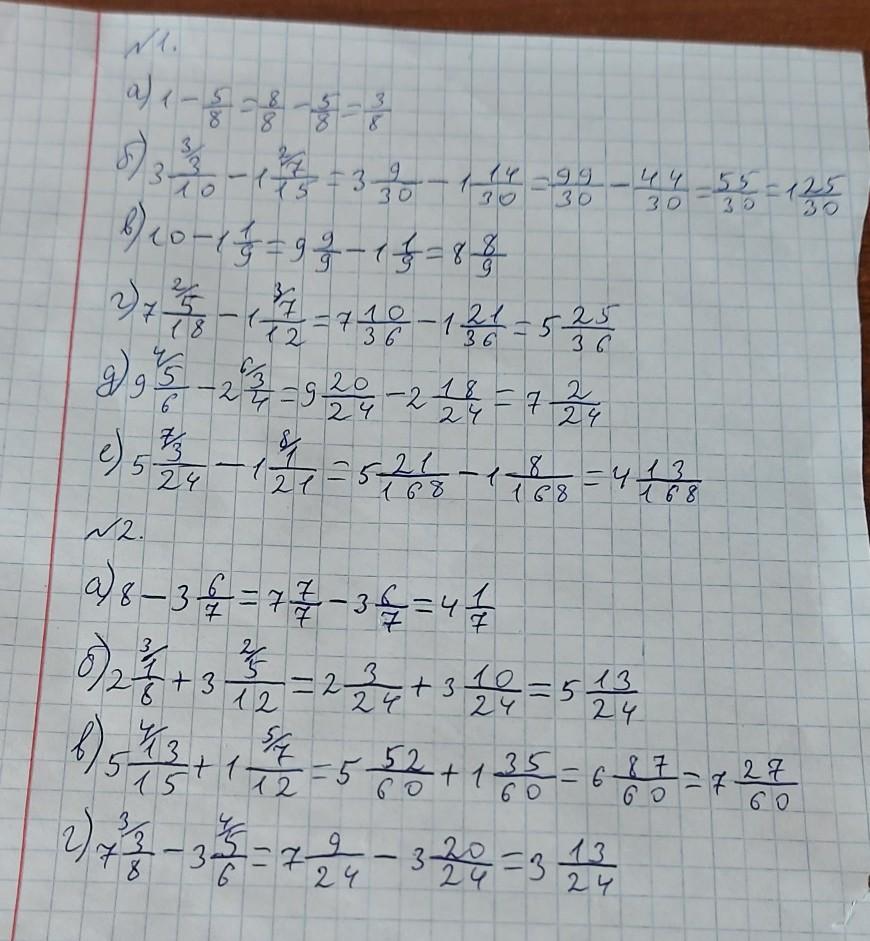 №1.
а) 1 - 5/8 = 8/8 - 5/8 = 3/8
б) 3 3/ 3/10 - 1 2/ 7/15 = 3 9/30 - 1 14/30 = 99/30 - 44/30 = 55/30 = 1 25/30
в) 10 - 1 1/9 = 9 9/9 - 1 1/9 = 8 8/9
г) 7 2/ 5/18 - 1 3/ 7/12 = 7 10/36 - 1 21/36 = 5 25/36
д) 9 4/ 5/6 - 2 6/ 3/4 = 9 20/24 - 2 18/24 = 7 2/24
е) 5 7/ 3/24 - 1 8/ 1/21 = 5 21/168 - 1 8/168 = 4 13/168
№2.
а) 8 - 3 6/7 = 7 7/7 - 3 6/7 = 4 1/7
б) 2 3/ 1/8 + 3 2/ 5/12 = 2 3/24 + 3 10/24 = 5 13/24
в) 5 4/ 13/15 + 1 5/ 7/12 = 5 52/60 + 1 35/60 = 6 87/60 = 7 27/60
г) 7 3/ 3/8 - 3 4/ 5/6 = 7 9/24 - 3 20/24 = 3 13/24